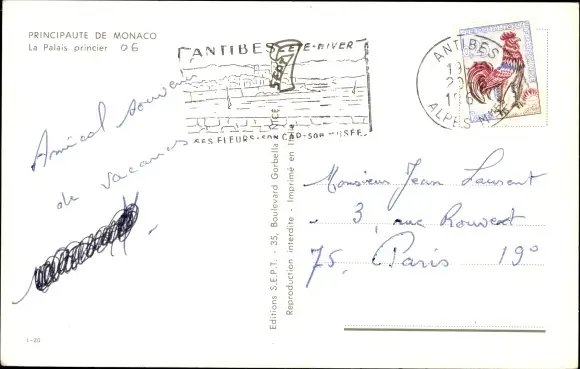 PRINCIPAUTE DE MONACO
Le Palais princier 06
ANTIBES ETE-HIVER
SES FLEURS-SON CAP-SON MUSEE
ANTIBES
ALPES
Amical souvenir
de vacances
Monsieur Jean Laurent
3, rue Rouvet
75, Paris 19°
Editions S.E.P.T. - 35, Boulevard Gorbella - NICE
Reproduction interdite - Imprimé en
1-20